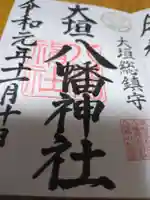 大垣総鎮守
大垣八幡神社
令和元年十一月十日